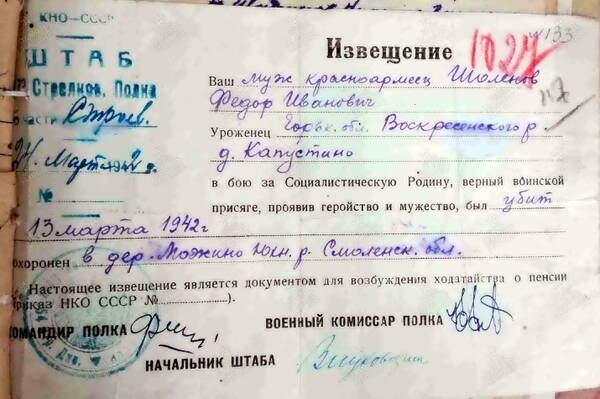 НКО—СССР
ШТАБ
Стрелков. Полка
части Строев.
24 Март 1942 г.
№
Извещение
1027
133
Ваш муж красноармеец Шоленов
Федор Иванович
Уроженец Горьк. обл. Воскресенского р.
д. Капустино
в бою за Социалистическую Родину, верный воинской
присяге, проявив геройство и мужество, был убит
13 марта 1942г
похоронен в дер. Можино Юхн. р. Смоленск. обл.
Настоящее извещение является документом для возбуждения ходатайства о пенсии
(приказ НКО СССР № ).
КОМАНДИР ПОЛКА
ВОЕННЫЙ КОМИССАР ПОЛКА
НАЧАЛЬНИК ШТАБА